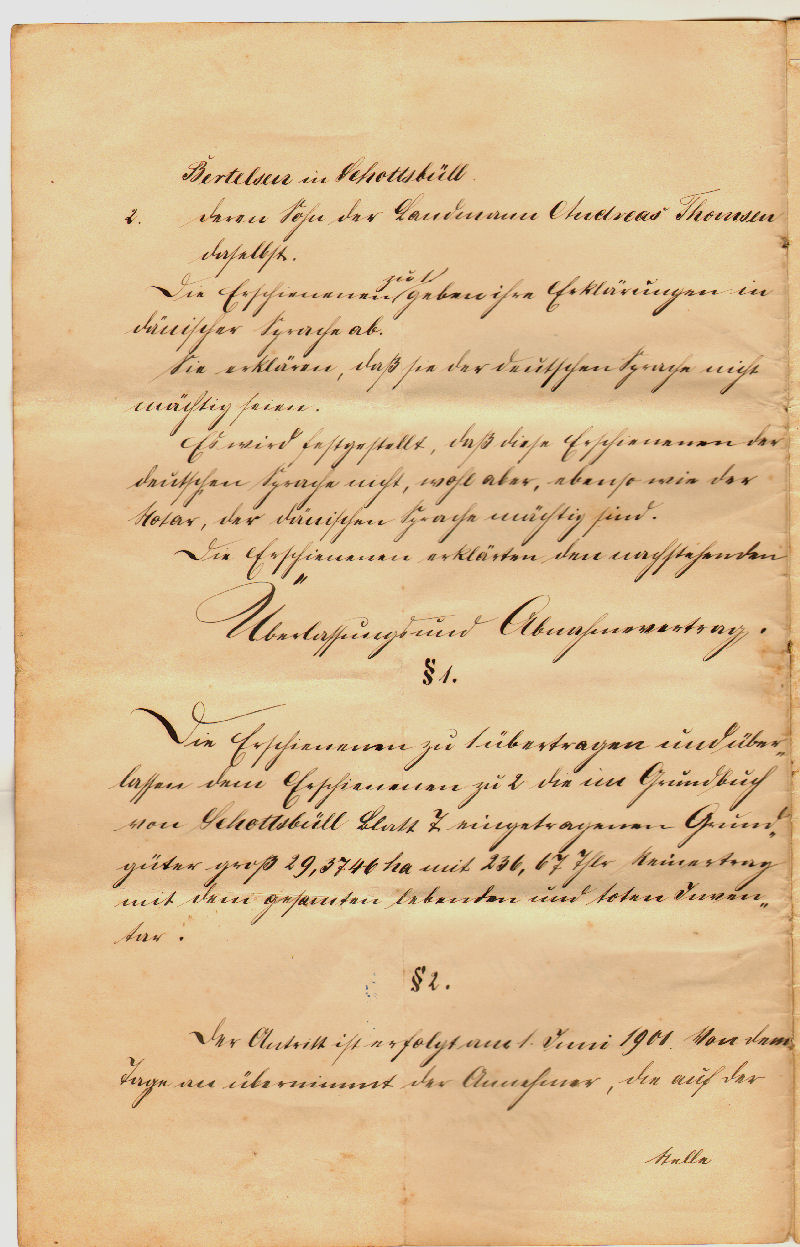 Bertelsen in Schottsbüll.
2. deren Sohn der Landmann Andreas Thomsen
daselbst.
zu 1
Die Erschienenen geben ihre Erklärungen in
dänischer Sprache ab.
Sie erklären, daß sie der deutschen Sprache nicht
mächtig seien.
Es wird festgestellt, daß diese Erschienenen der
deutschen Sprache nicht, wohl aber, ebenso wie der
Notar, der dänischen Sprache mächtig sind.
Die Erschienenen erklärten den nachstehenden
Überlassungs und Abnahmevertrag.
§ 1.
Die Erschienenen zu 1 übertragen und über-
lassen dem Erschienenen zu 2 die im Grundbuch
von Schottsbüll Blatt 7 eingetragenen Grund-
güter groß 29,3746 ha mit 236,67 Thlr Reinertrag
mit dem gesamten lebenden und toten Inven-
tar.
§ 2.
Der Antritt ist erfolgt am 1. Juni 1901. Von dem
Tage an übernimmt der Annehmer, die auf der
Stelle